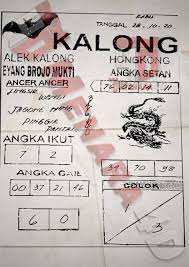 RABU
TANGGAL 28-10-20
KALONG
ALEK KALONG
EYANG BROJO MUKTI
HONGKONG
ANGKA SETAN
ANCER ANCER
76 02 14 11
WANG
JAGONG MANG
PINGGIR
PANTAI
ANGKA IKUT
7 2
37 70 98
ANGKA GAIB
00 37 21 46
COLOK
1
3
6 0